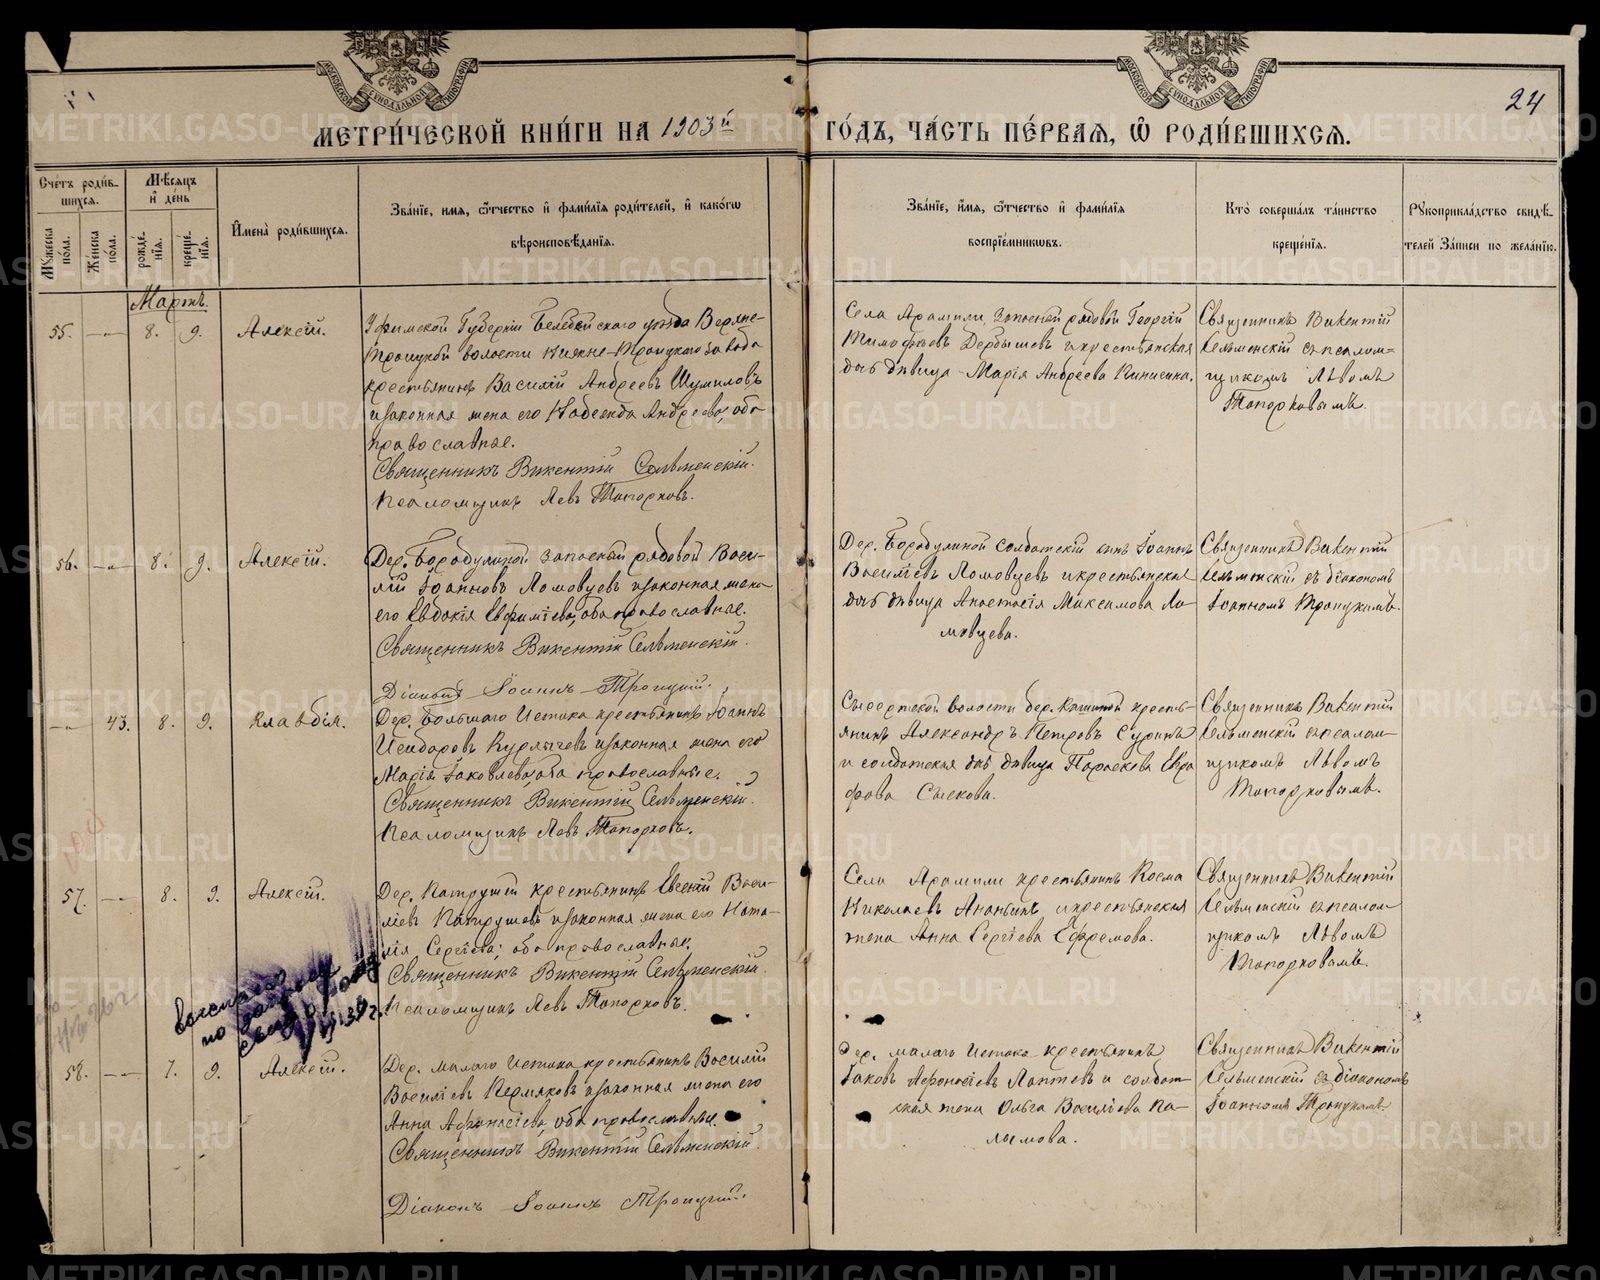 МЕТРИ́ЧЕСКОЙ КНИ́ГИ НА 1903й ГО́ДЪ, ЧА́СТЬ ПЕ́РВАѦ, Ѿ РОДИ́ВШИХСѦ.
24
Сче́тъ роди́в-
шихсѧ.
Мѣ́сѧцъ
и҆ де́нь
Мꙋ́жеска по́ла.
Же́нска по́ла.
рожде́нїѧ.
креще́нїѧ.
И҆мена̀ роди́вшихсѧ.
Зва́нїе, имѧ, ѻ҆́тчество и҆ фами́лїѧ роди́телей, и҆ како́гѡ
вѣроисповѣ́данїѧ.
Зва́нїе, и҆́мѧ, ѻ҆́тчество и҆ фами́лїѧ
воспрїе́мниковъ.
Кто̀ соверша́лъ та́инство
креще́нїѧ.
Рꙋкоприкла́дство свидѣ́-
телей за́писи по жела́нїю.
Мартъ.
55. — 8. 9. Алексій.
Уфимской Губерніи Белебейскаго уѣзда Верхне-
Троицкой волости Нижне-Троицкаго завода
крестьянинъ Василій Андреевъ Шумиловъ
и законная жена его Надежда Андреева, оба
православные.
Священникъ Викентій Сельменскій.
Псаломщикъ Левъ Топорковъ.
Села Арамили, запасный рядовой Георгій
Тимофѣевъ Дербышевъ и крестьянская
дочь дѣвица Марія Андреева
Священникъ Викентій
Сельменскій съ псалом-
щикомъ Львомъ
Топорковымъ.
56. — 8. 9. Алексій.
Дер. Бородулиной запасный рядовой Васи-
лій Іоанновъ Ломовцевъ и законная жена
его Евдокія Евфиміева, оба православные.
Священникъ Викентій Сельменскій.
Діаконъ Іоаннъ Троицкій.
Дер. Бородулиной солдатскій сынъ Іоаннъ
Васильевъ Ломовцевъ и крестьянская
дочь дѣвица Анастасія Максимова Ло-
мовцева.
Священникъ Викентій
Сельменскій съ діакономъ
Іоанномъ Троицкимъ.
— 43. 8. 9. Клавдія.
Дер. Большаго Истока крестьянинъ Іоаннъ
Исидоровъ Курлычевъ и законная жена его
Марія Іаковлева, оба православные.
Священникъ Викентій Сельменскій.
Псаломщикъ Левъ Топорковъ.
Сысертской волости дер. Кашиной кресть-
янинъ Александръ Петровъ Суринъ
и солдатская дочь дѣвица Параскева Евгра-
фова Сыскова.
Священникъ Викентій
Сельменскій съ псалом-
щикомъ Львомъ
Топорковымъ.
57. — 8. 9. Алексій.
Дер. Патруши крестьянинъ Евсевій Васи-
ліевъ Патрушевъ и законная жена его Ната-
лія Сергіева, оба православные.
Священникъ Викентій Сельменскій.
Псаломщикъ Левъ Топорковъ.
Села Арамили крестьянинъ Косма
Николаевъ Ананьинъ и крестьянская
жена Анна Сергіева Ефремова.
Священникъ Викентій
Сельменскій съ псалом-
щикомъ Львомъ
Топорковымъ.
58. — 7. 9. Алексій.
Дер. Малаго Истока крестьянинъ Василій
Василіевъ Пермяковъ и законная жена его
Анна Афанасіева, оба православные.
Священникъ Викентій Сельменскій.
Діаконъ Іоаннъ Троицкій.
Дер. Малаго Истока крестьянинъ
Іаковъ Афонасіевъ Лаптевъ и солдат-
ская жена Ольга Василіева Па-
лымова.
Священникъ Викентій
Сельменскій съ діакономъ
Іоанномъ Троицкимъ.
METRIKI.GASO-URAL.RU